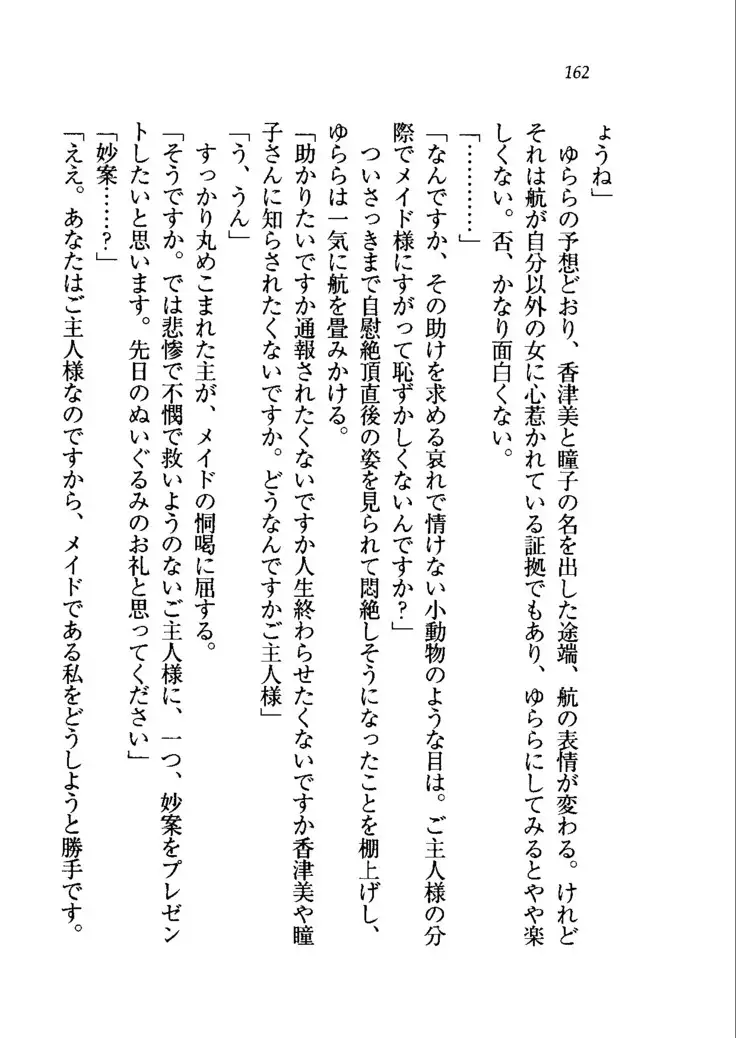 162
ょうね」
　ゆららの予想どおり、香津美と瞳子の名を出した途端、航の表情が変わる。けれど
それは航が自分以外の女に心惹かれている証拠でもあり、ゆららにしてみるとやや楽
しくない。否、かなり面白くない。
「…………」
「なんですか、その助けを求める哀れで情けない小動物のような目は。ご主人様の分
際でメイド様にすがって恥ずかしくないんですか？」
　ついさっきまで自慰絶頂直後の姿を見られて悶絶しそうになったことを棚上げし、
ゆららは一気に航を畳みかける。
「助かりたいですか通報されたくないですか人生終わらせたくないですか香津美や瞳
子さんに知らされたくないですか。どうなんですかご主人様」
「う、うん」
　すっかり丸めこまれた主が、メイドの恫喝に屈する。
「そうですか。では悲惨で不憫で救いようのないご主人様に、一つ、妙案をプレゼン
トしたいと思います。先日のぬいぐるみのお礼と思ってください」
「妙案……？」
「ええ。あなたはご主人様なのですから、メイドである私をどうしようと勝手です。